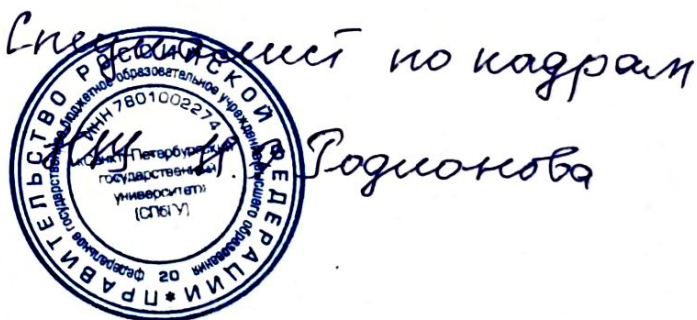 Специалист по кадрам
Родионова
ПРАВИТЕЛЬСТВО РОССИЙСКОЙ ФЕДЕРАЦИИ *
федеральное государственное бюджетное образовательное учреждение высшего образования
20
ИНН 7801002274
«Санкт-Петербургский
государственный
университет»
(СПбГУ)